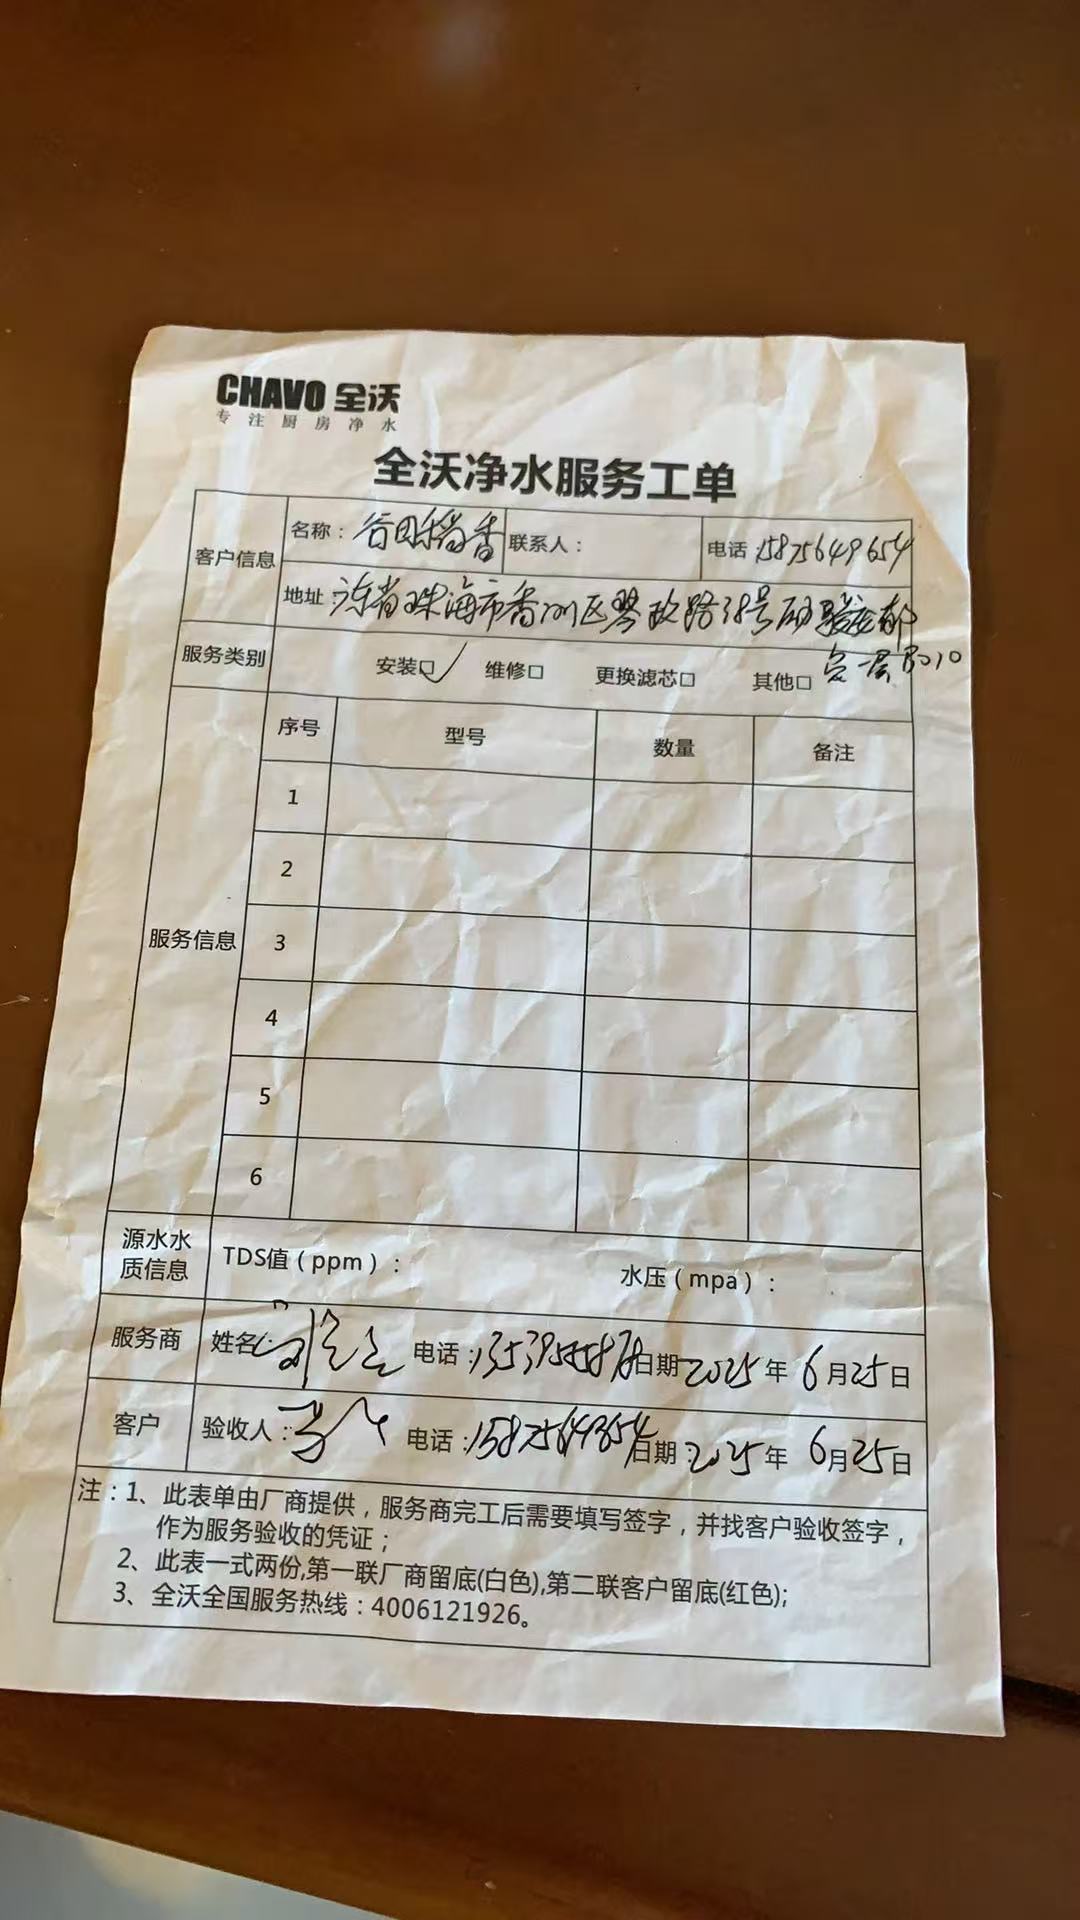 CHAVO 全沃
专注厨房净水
全沃净水服务工单
客户信息
名称：谷田稻香 联系人： 电话：15875649654
地址：东省珠海市香洲区琴政路38号 负一层B010
服务类别 安装□✓ 维修□ 更换滤芯□ 其他□
服务信息
序号 型号 数量 备注
1
2
3
4
5
6
源水水质信息 TDS值（ppm）： 水压（mpa）：
服务商 姓名： 电话： 日期 2025年 6月25日
客户 验收人： 电话： 日期：2025年 6月25日
注：1、此表单由厂商提供，服务商完工后需要填写签字，并找客户验收签字，
作为服务验收的凭证；
2、此表一式两份,第一联厂商留底(白色),第二联客户留底(红色);
3、全沃全国服务热线：4006121926。